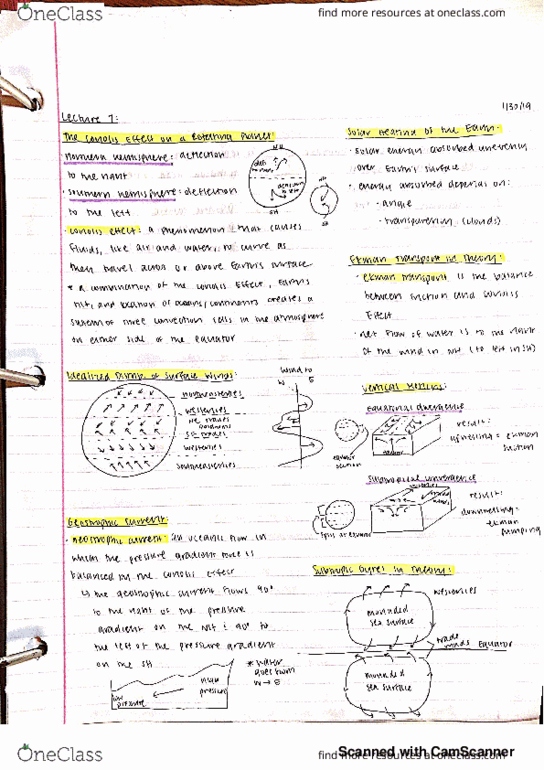 OneClass
find more resources at oneclass.com
1/30/19
Lecture 7:
The Coriolis Effect on a Rotating Planet
Northern hemisphere: deflection
to the right
Southern hemisphere: deflection
to the left
Coriolis effect: a phenomenon that causes
fluids, like air and water, to curve as
they travel across or above Earth's surface
* a combination of the Coriolis Effect, Earth's
tilt, and location of oceans/continents creates a
system of three convection cells in the atmosphere
on either side of the equator
Solar Heating of the Earth:
• Solar energy absorbed unevenly
over Earth's surface
• energy absorbed depends on:
• angle
• transparency (clouds)
Ekman Transport in Theory:
• Ekman transport is the balance
between friction and Coriolis
Effect
• net flow of water is to the right
of the wind in NH (to left in SH)
Idealized Pattern of Surface Winds:
northeasterlies
westerlies
NE trades
doldrums
SE trades
westerlies
southeasterlies
Wind to
W E
Vertical Motions:
Equatorial divergence
result:
upwelling = ekman
suction
Subtropical convergence
result:
downwelling =
ekman
pumping
Geostrophic Current:
• Geostrophic current: an oceanic flow in
which the pressure gradient force is
balanced by the Coriolis effect
↳ the geostrophic current flows 90°
to the right of the pressure
gradient on the NH & 90° to
the left of the pressure gradient
on the SH
low
pressure
high
pressure
* water
goes from
W → E
Subtropic Gyres in Theory:
westerlies
mounded
sea surface
trade
winds
Equator
mounded
sea surface
OneClass
find more resources at oneclass.com
Scanned with CamScanner